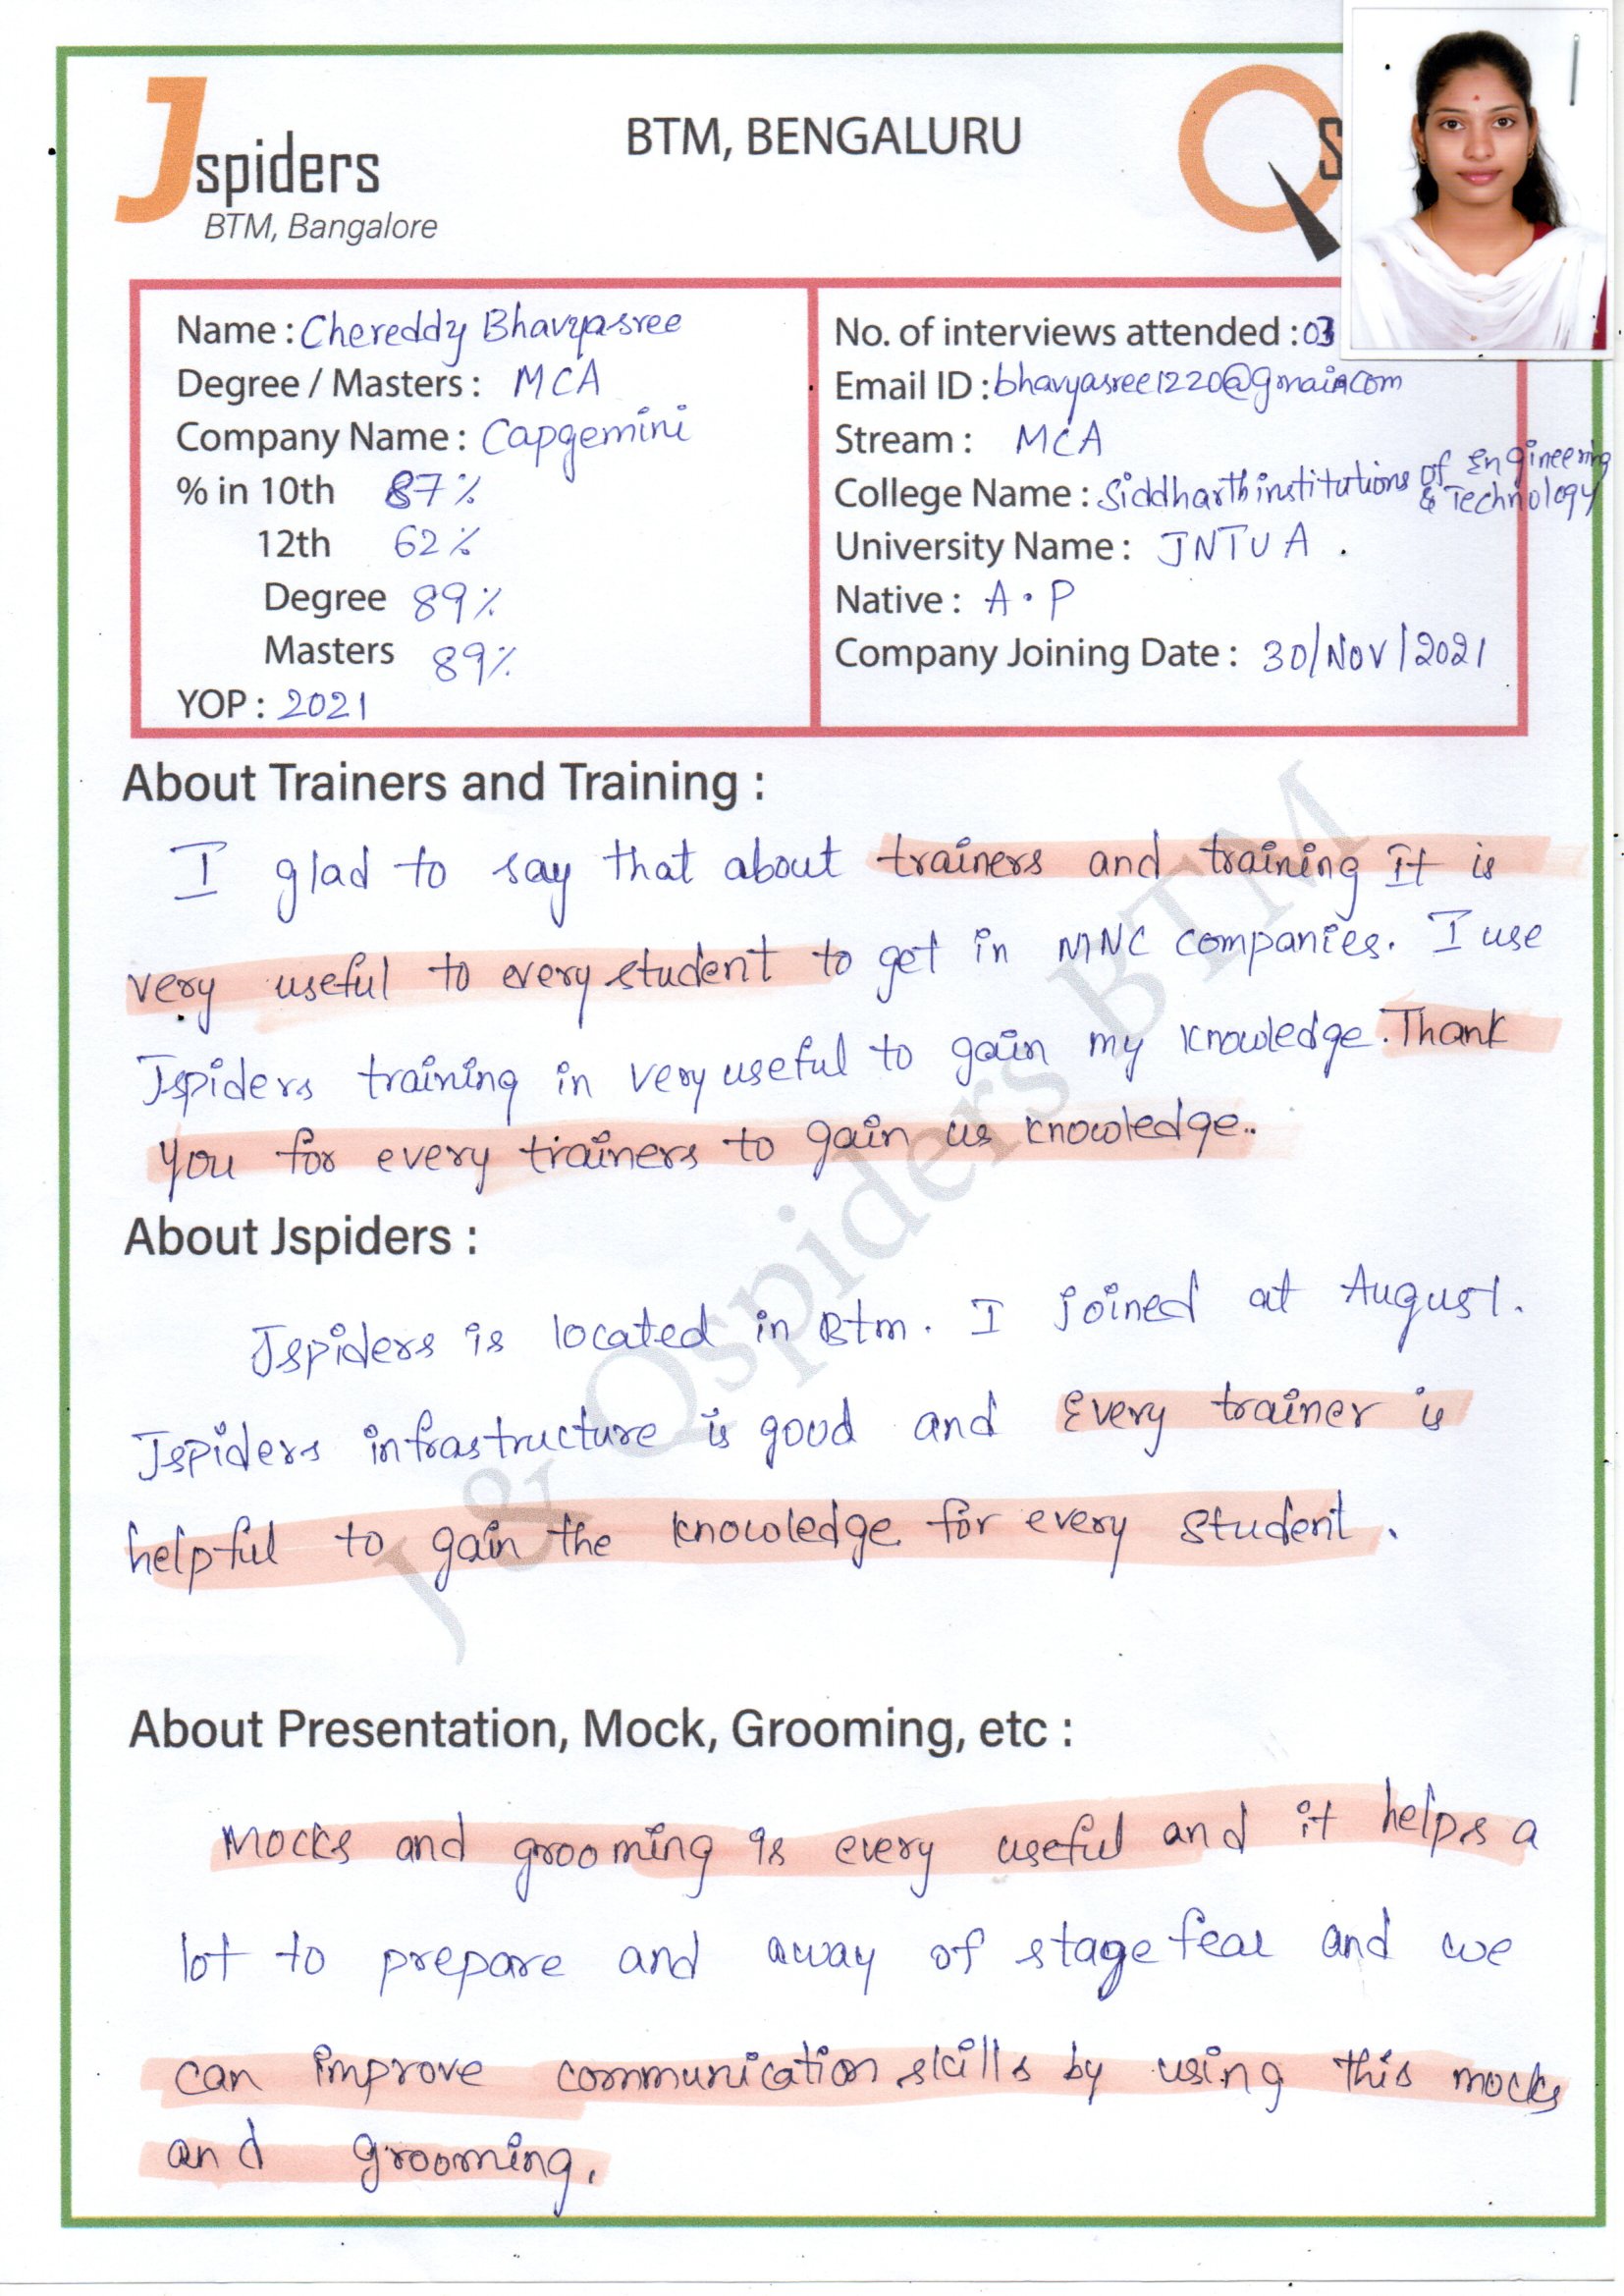 Jspiders
BTM, Bangalore
BTM, BENGALURU
QS
Name : Chereddy Bhavyasree
Degree / Masters : MCA
Company Name : Capgemini
% in 10th 87%
12th 62%
Degree 89%
Masters 89%
YOP : 2021
No. of interviews attended : 03
Email ID : bhavyasree1220@gmail.com
Stream : MCA
College Name : Siddharth institutions of Engineering
& Technology
University Name : JNTUA .
Native : A.P
Company Joining Date : 30/Nov/2021
About Trainers and Training :
I glad to say that about trainers and training It is
very useful to every student to get in MNC companies. I use
Jspiders training in very useful to gain my knowledge. Thank
you for every trainers to gain us knowledge..
About Jspiders :
Jspiders is located in Btm. I joined at August.
Jspiders infrastructure is good and Every trainer is
helpful to gain the knowledge for every student.
About Presentation, Mock, Grooming, etc :
Mocks and grooming is every useful and it helps a
lot to prepare and away of stage fear and we
can improve communication skills by using this mocks
and grooming.
J & Qspiders BTM